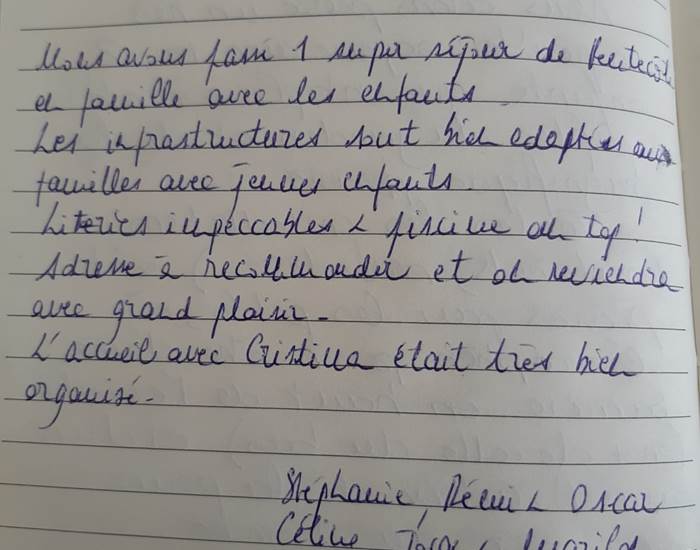 Nous avons passé 1 super séjour de Pentecôte
en famille avec les enfants.
Les infrastructures sont bien adaptées aux
familles avec jeunes enfants.
Literies impeccables & piscine au top !
Adresse à recommander et on reviendra
avec grand plaisir.
L'accueil avec Cristina était très bien
organisé.
Stéphanie, Rémi & Oscar
Céline